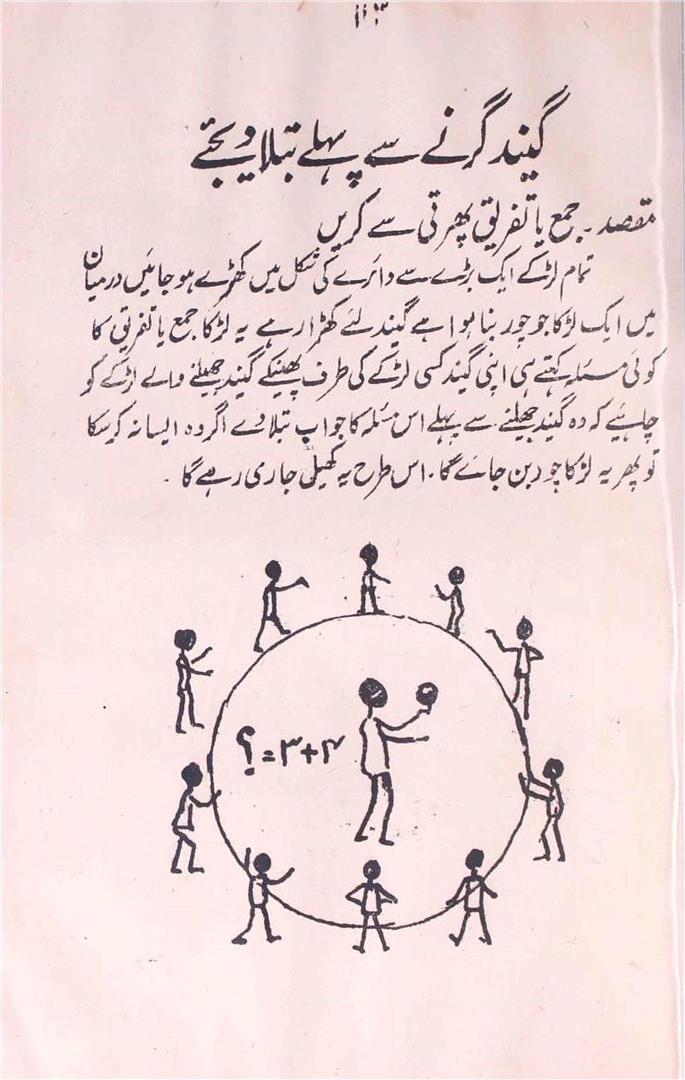 ۱۱۳
گیند گرنے سے پہلے بتلا دیجئے
مقصد۔ جمع یا تفریق پھرتی سے کریں
تمام لڑکے ایک بڑے سے دائرے کی شکل میں کھڑے ہو جائیں درمیان
میں ایک لڑکا جو چور بنا ہوا ہے گیند لئے کھڑا رہے یہ لڑکا جمع یا تفریق کا
کوئی مسئلہ کہتے ہی اپنی گیند کسی لڑکے کی طرف پھینکے گیند جھیلنے والے لڑکے کو
چاہئیے کہ وہ گیند جھیلنے سے پہلے اس مسئلہ کا جواب بتلا دے اگر وہ ایسا نہ کر سکا
تو پھر یہ لڑکا چور بن جائے گا۔ اس طرح یہ کھیل جاری رہے گا۔
۴+۳=؟